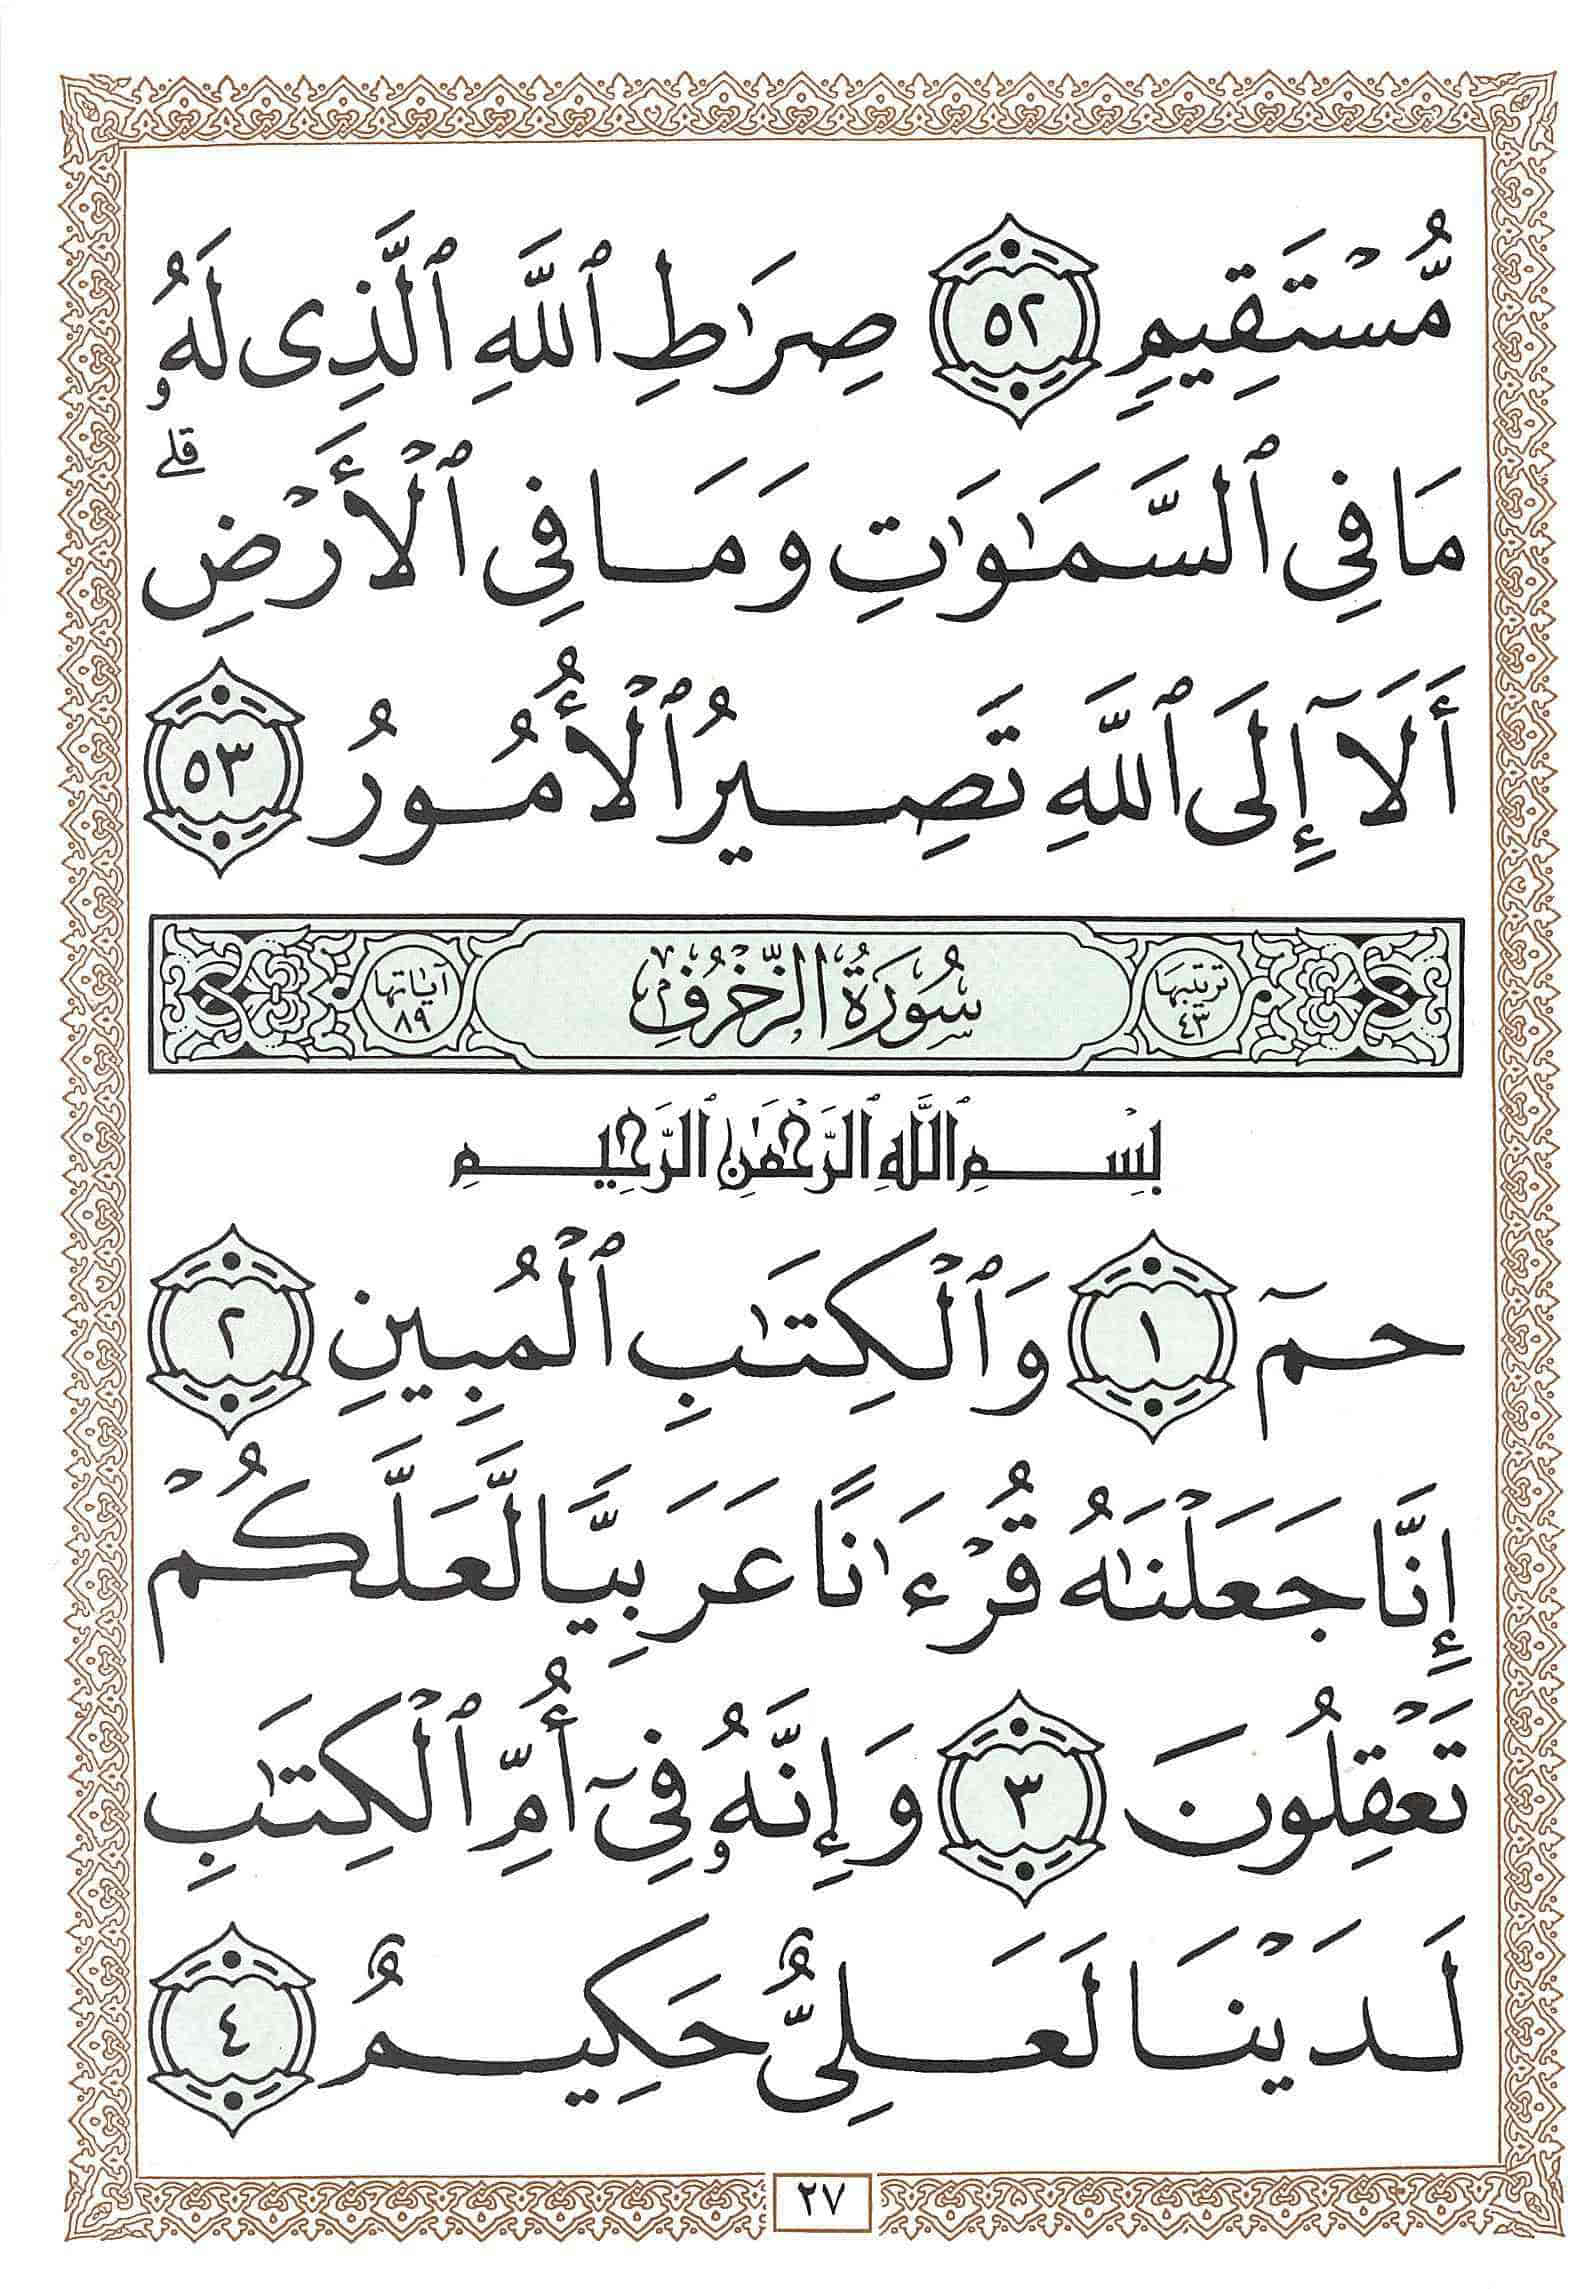 مُّسۡتَقِيمٖ ٥٢ صِرَٰطِ ٱللَّهِ ٱلَّذِى لَهُۥ
مَا فِى ٱلسَّمَٰوَٰتِ وَمَا فِى ٱلۡأَرۡضِۗ
أَلَآ إِلَى ٱللَّهِ تَصِيرُ ٱلۡأُمُورُ ٥٣
ترتيبها ٤٣ سُورَةُ الزُّخْرُفِ آياتها ٨٩
بِسۡمِ ٱللَّهِ ٱلرَّحۡمَٰنِ ٱلرَّحِيمِ
حمٓ ١ وَٱلۡكِتَٰبِ ٱلۡمُبِينِ ٢
إِنَّا جَعَلۡنَٰهُ قُرۡءَٰنًا عَرَبِيّٗا لَّعَلَّكُمۡ
تَعۡقِلُونَ ٣ وَإِنَّهُۥ فِىٓ أُمِّ ٱلۡكِتَٰبِ
لَدَيۡنَا لَعَلِىٌّ حَكِيمٌ ٤
٢٧